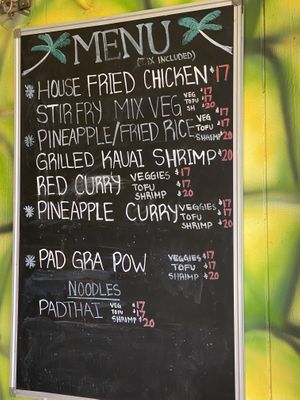 MENU
(TAX INCLUDED)
* HOUSE FRIED CHICKEN $17
STIR FRY MIX VEG VEG $17
TOFU $17
SH $20
* PINEAPPLE/FRIED RICE VEG $17
TOFU $17
SHRIMP $20
GRILLED KAUAI SHRIMP $20
RED CURRY VEGGIES $17
TOFU $17
SHRIMP $20
* PINEAPPLE CURRY VEGGIES $17
TOFU $17
SHRIMP $20
* PAD GRA POW VEGGIES $17
TOFU $17
SHRIMP $20
NOODLES
PADTHAI VEG $17
TOFU $17
SHRIMP $20